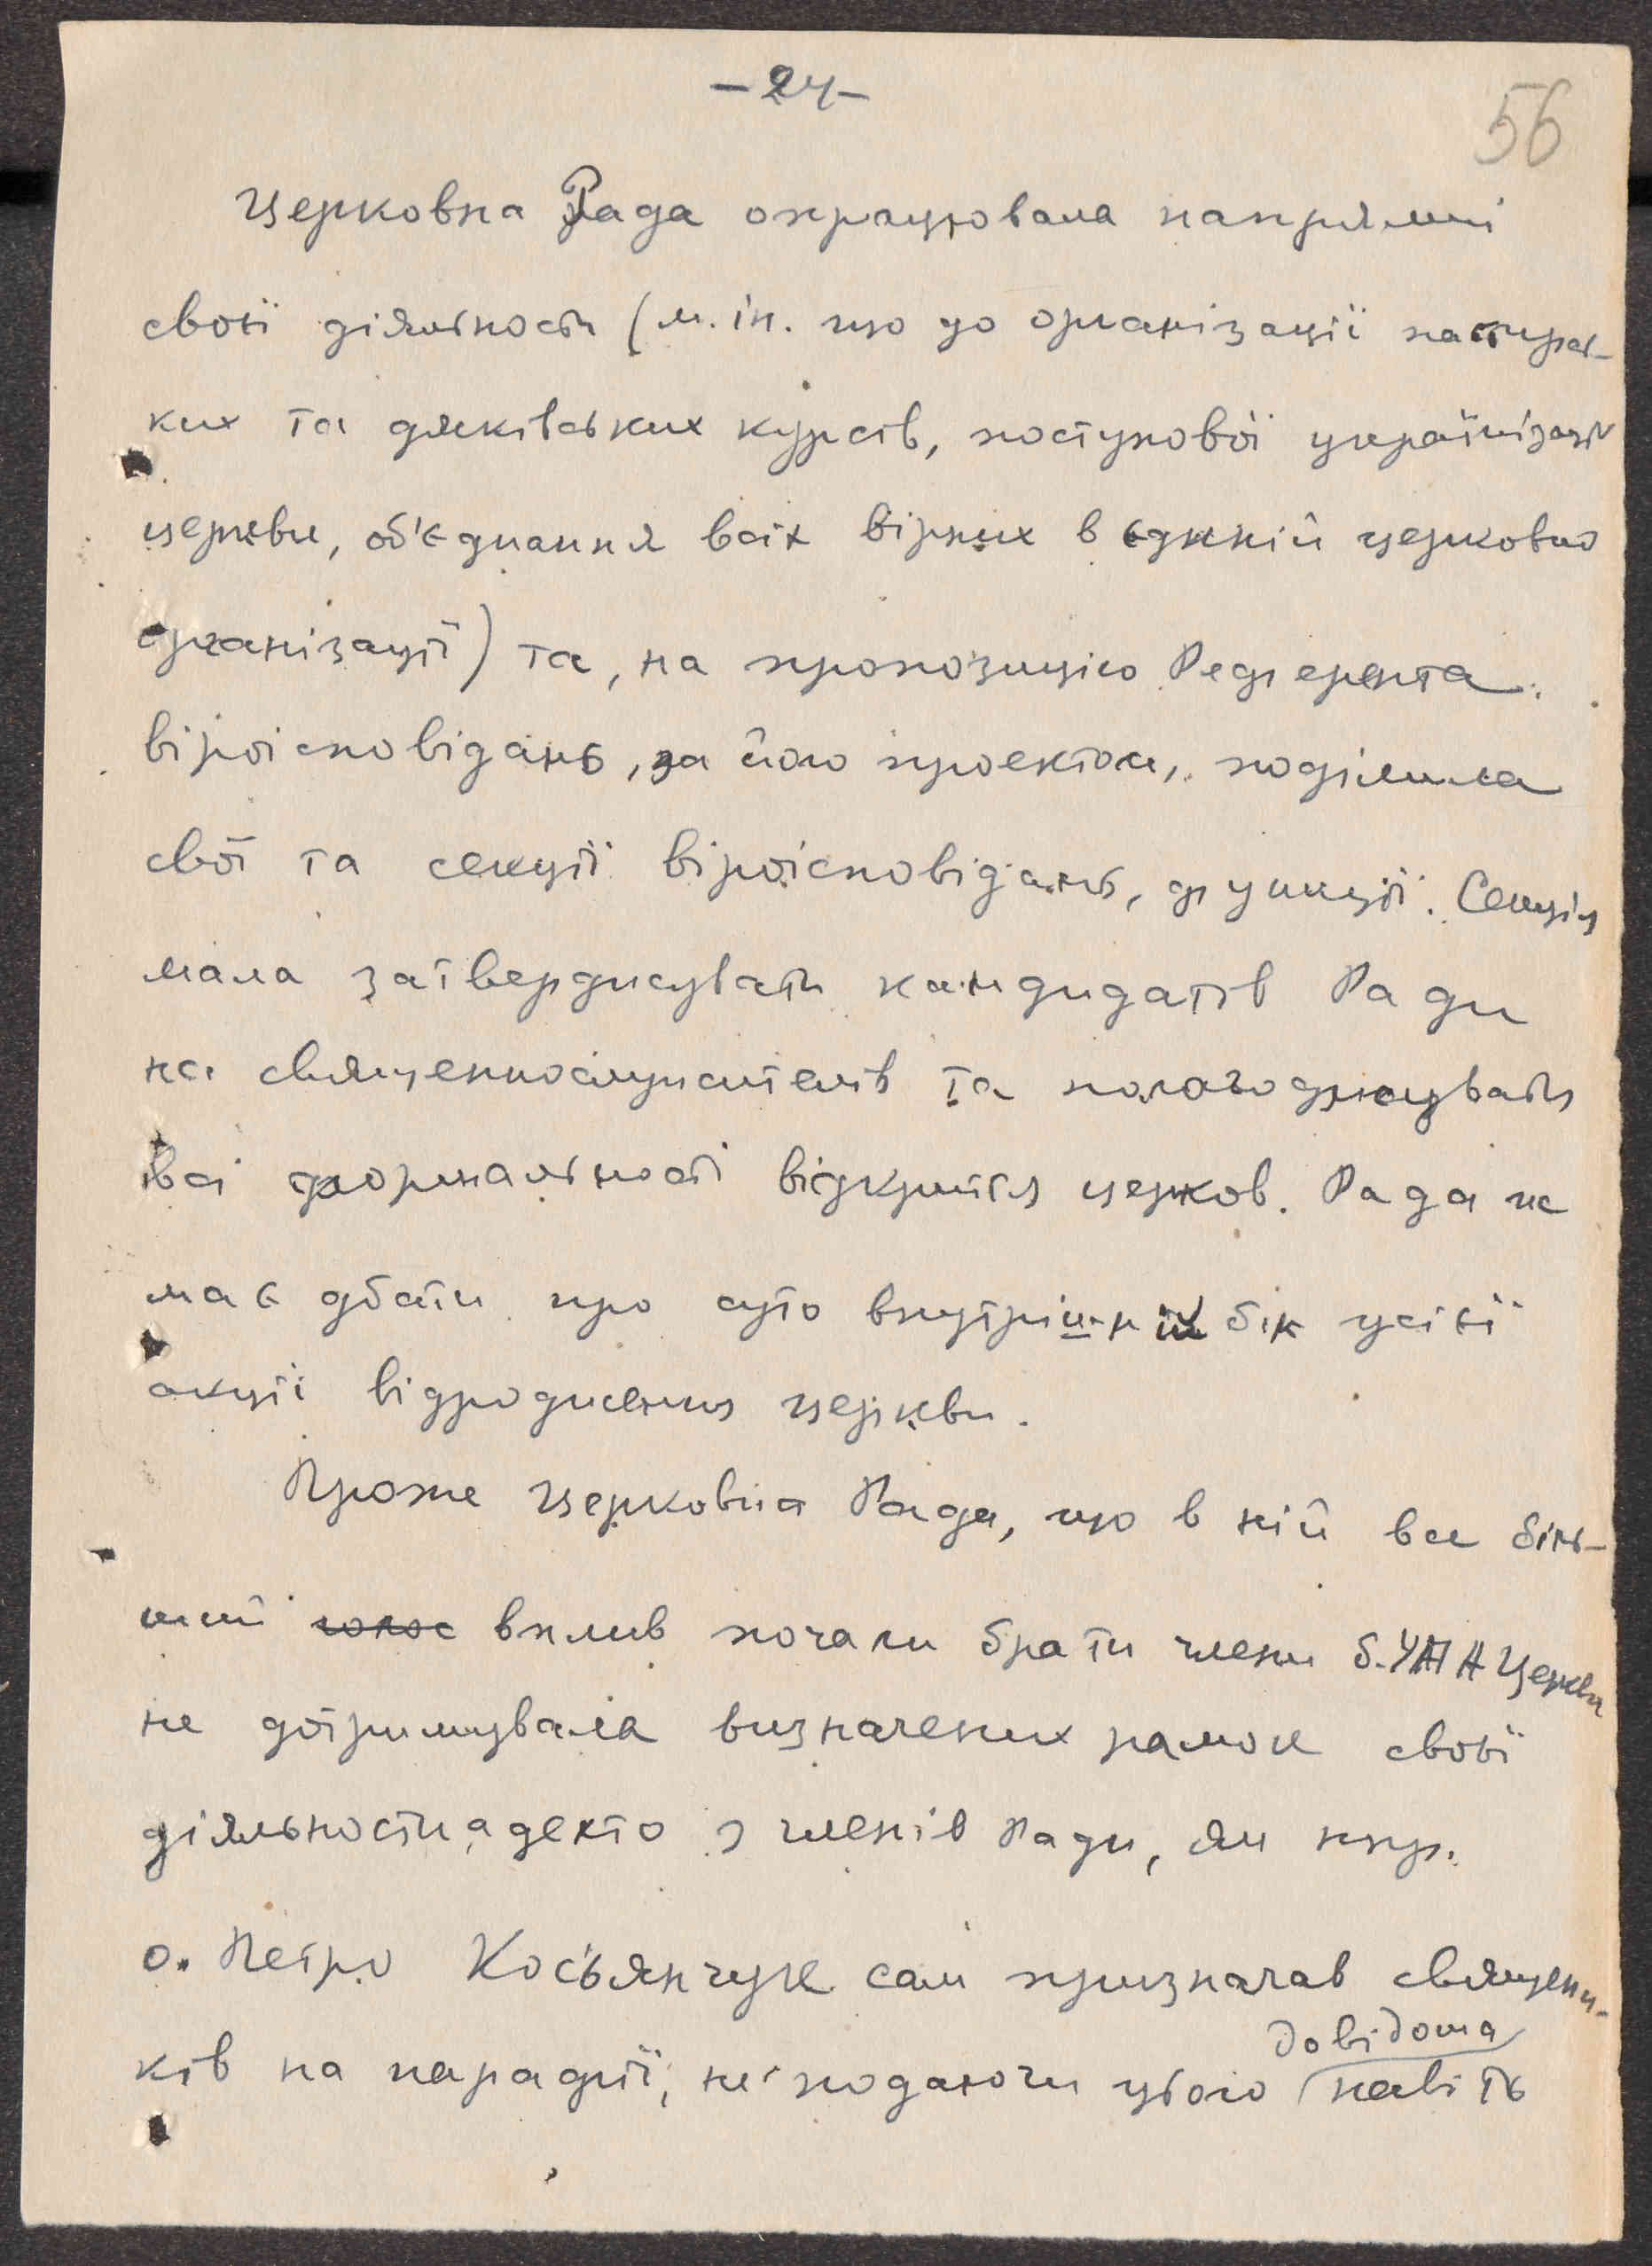 -24-
56
Церковна Рада опрацювала напрямні
своєї діяльности (м. ін. що до організації пастирсь-
ких та дяківських курсів, поступової українізації
церкви, об'єднання всіх вірних в єдиній церковній
організації) та, на пропозицію Референта
віроісповідань, за його проектом, поділила
свої та секції віроісповідань, функції. Секція
мала затверджувати кандидатів Ради
на священнослужителів та полагоджувати
всі формальності відкриття церков. Рада ж
має дбати про суто внутрішній бік усієї
акції відродження церкви.
Проте Церковна Рада, що в ній все біль-
ший голос вплив почали брати члени б. УАП Церкви
не дотримувала визначених рамок своєї
діяльности, а дехто з членів Ради, як нпр.
о. Петро Косьянчук сам призначав священи-
ків на парафії, не подаючи цього довідома навіть